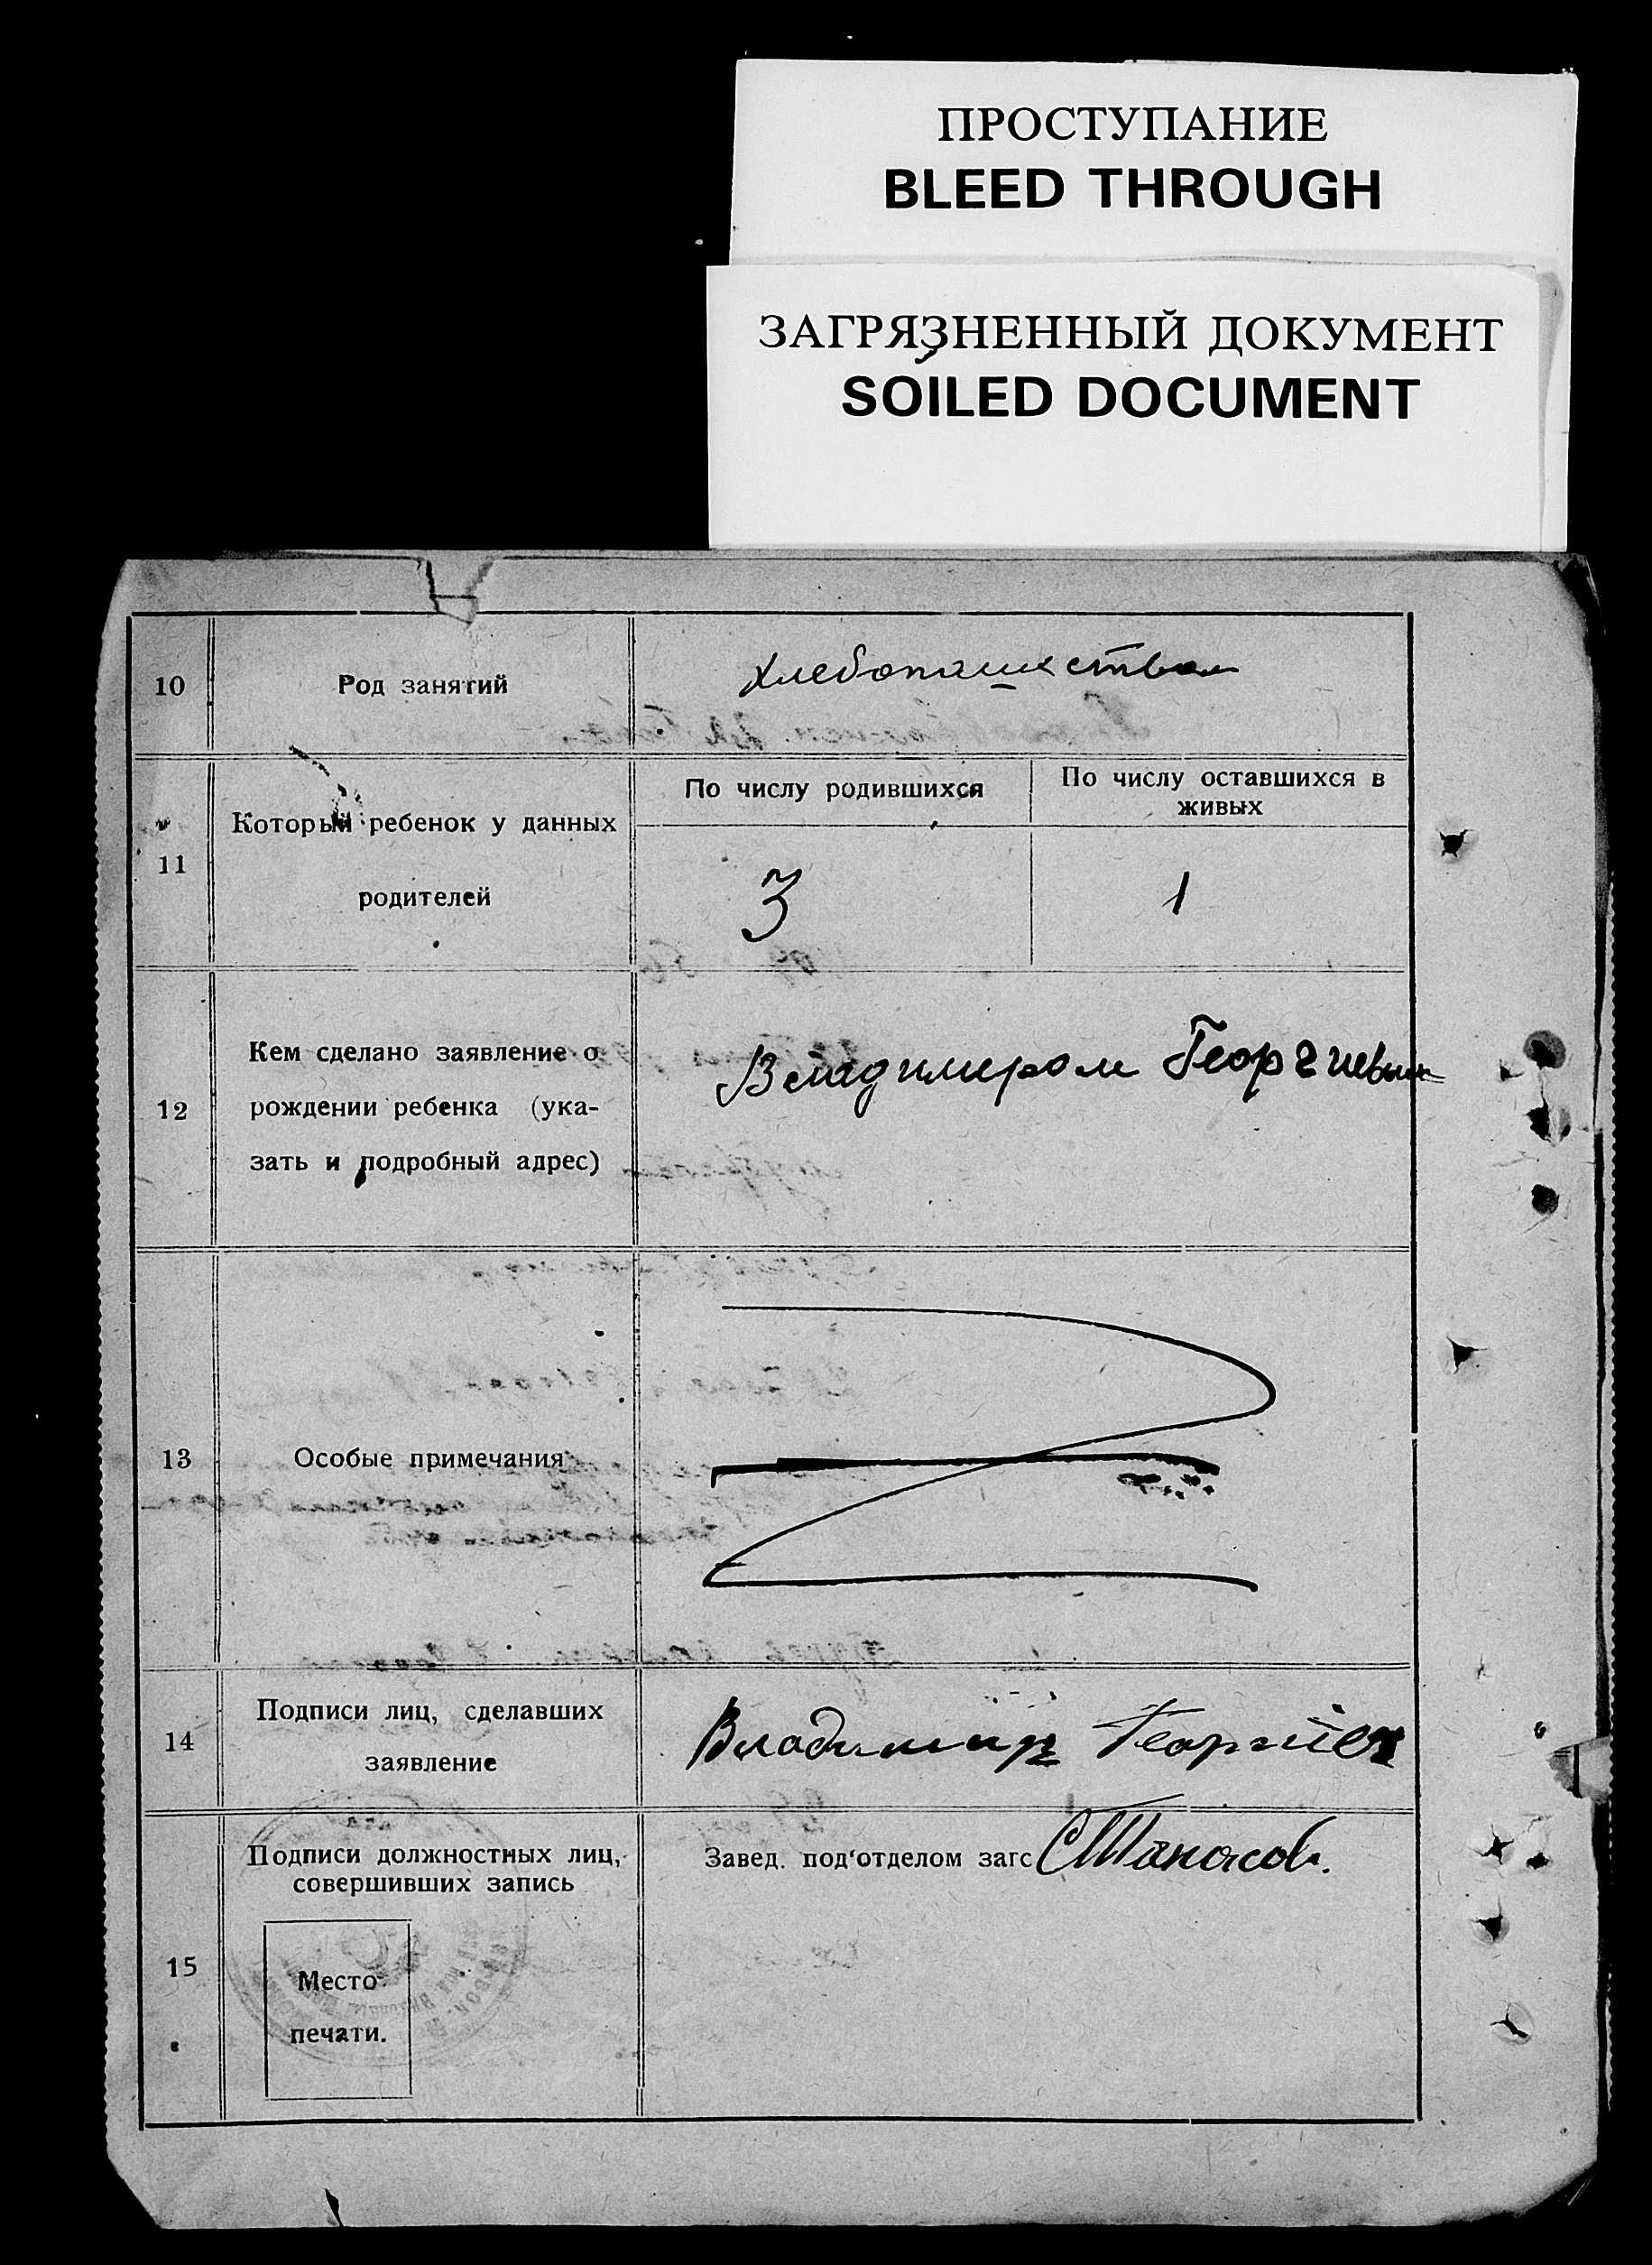 ПРОСТУПАНИЕ
BLEED THROUGH
ЗАГРЯЗНЕННЫЙ ДОКУМЕНТ
SOILED DOCUMENT
10 Род занятий хлебопашеством
11 Который ребенок у данных родителей
По числу родившихся По числу оставшихся в живых
3 1
12 Кем сделано заявление о
рождении ребенка (ука-
зать и подробный адрес)
Владимером Георгиевым
13 Особые примечания
14 Подписи лиц, сделавших
заявление
Владимир Георгиев
15 Подписи должностных лиц,
совершивших запись
Завед. под'отделом загс
Место
печати.